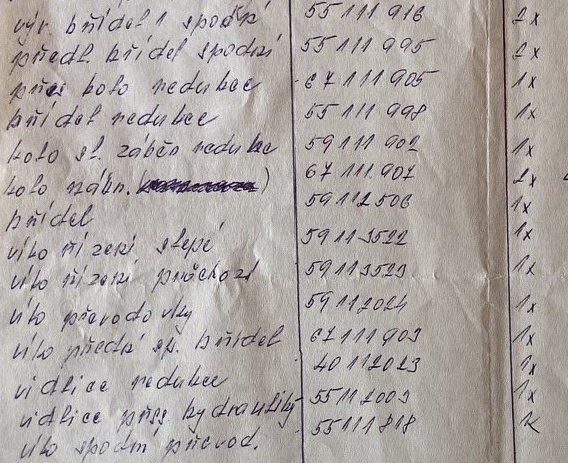 výv. hřídel 1 spodní 55 111 916 2x
předl. hřídel spodní 55 111 995 2x
přes kolo redukce 67 111 905 1x
hřídel redukce 55 111 998 1x
kolo st. záběr redukce 59 111 902 1x
kolo náhn. ) 67 111.907 2x
hřídel 59 112 506 1x
víko řízení slepé 59 113522 1x
víko řízení průchozí 59 113523 1x
víko převodovky 59 112024 1x
víko přední sp. hřídel 67 111 903 1x
vidlice redukce 40 112023 1x
vidlice přes. hydrauliky 55 112003 1x
víko spodní převod. 55 111 818